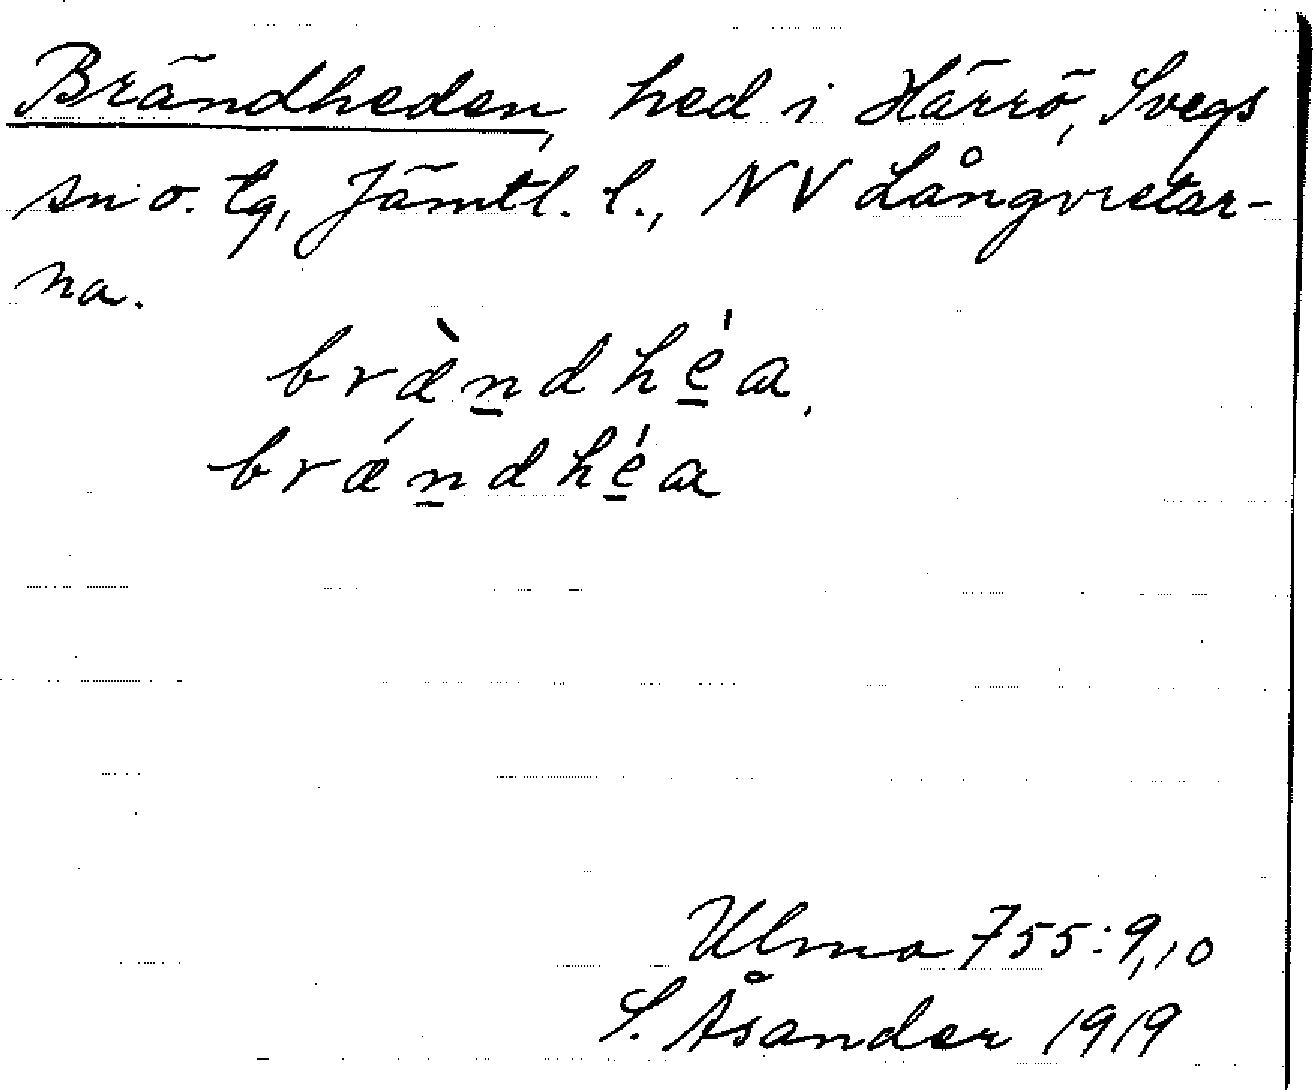 Brändheden, hed i Härrö, Svegs
sn o. tg, Jämtl. l., NV Långvretar-
na.
bræ̀n̲dhé̲a,
brǽn̲dhé̲a
Ulma 755:9,10
S. Åsander 1919